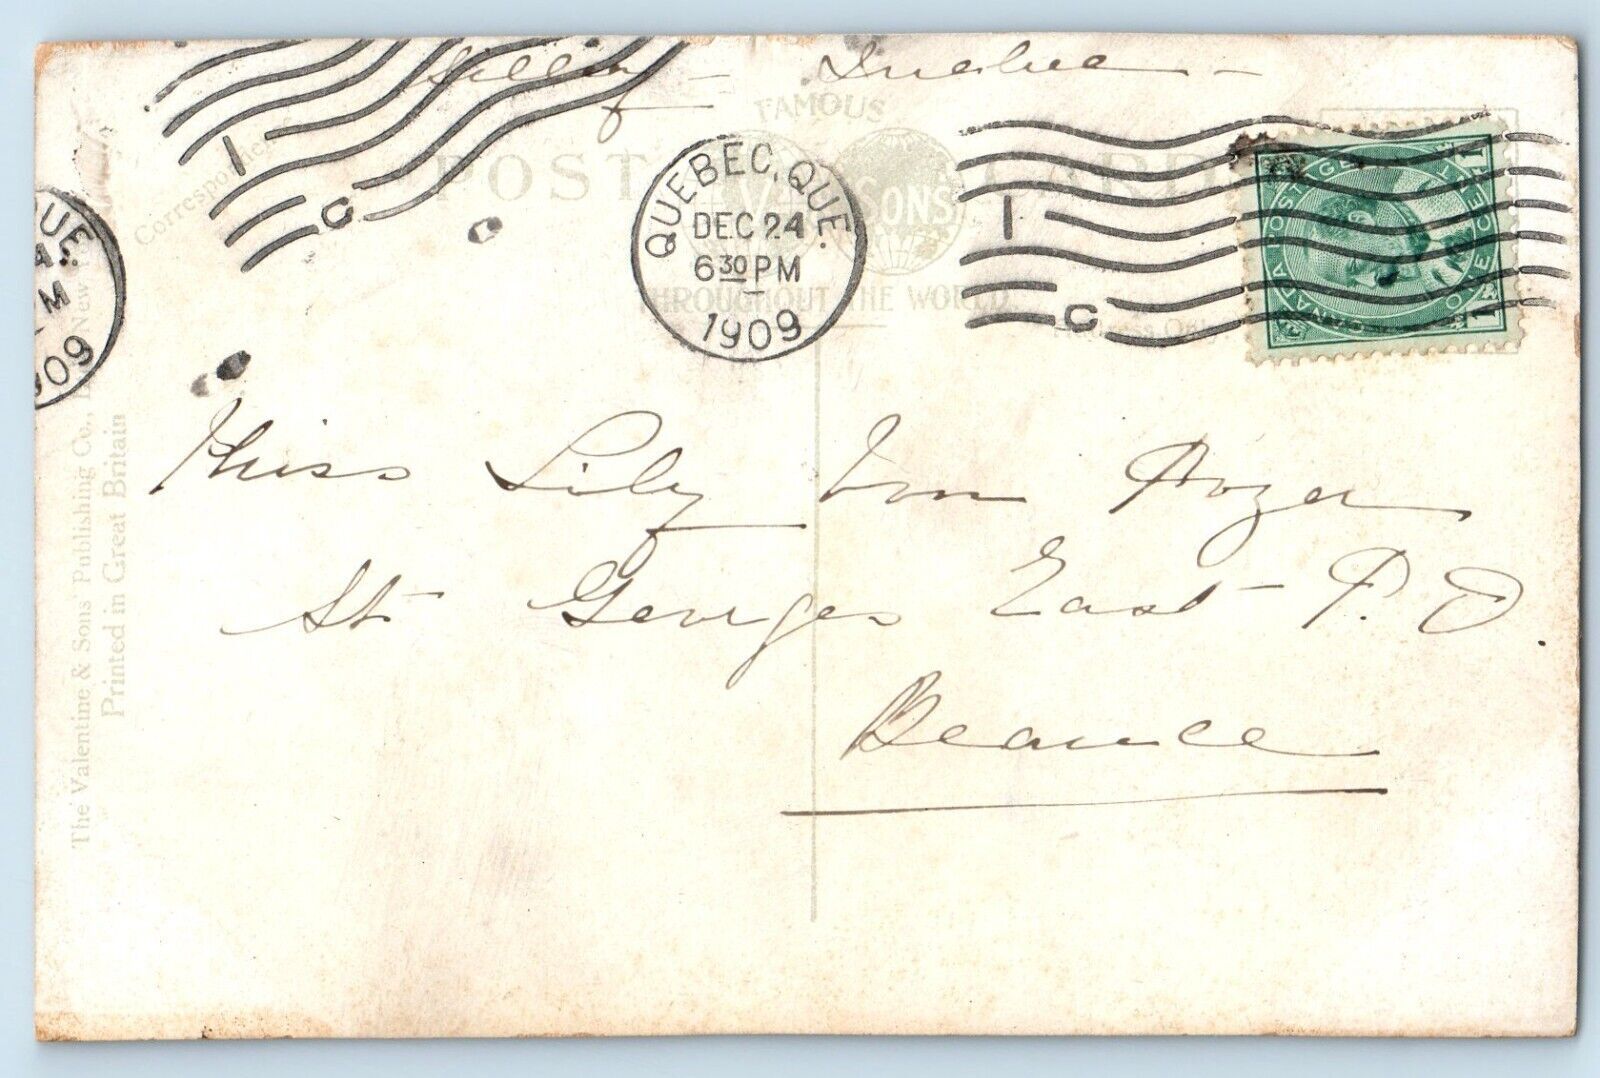 Sillery - Quebec -
FAMOUS
POST CARD
V SONS
THROUGHOUT THE WORLD
Correspondence
QUEBEC, QUE.
DEC 24
6 30 PM
1909
1 C
1 C
CANADA POSTAGE
ONE CENT
1 1
QUE.
M
1909
The Valentine & Sons' Publishing Co., New
Printed in Great Britain
Miss Lily Von Pozer
St Georges East P. O.
Beauce